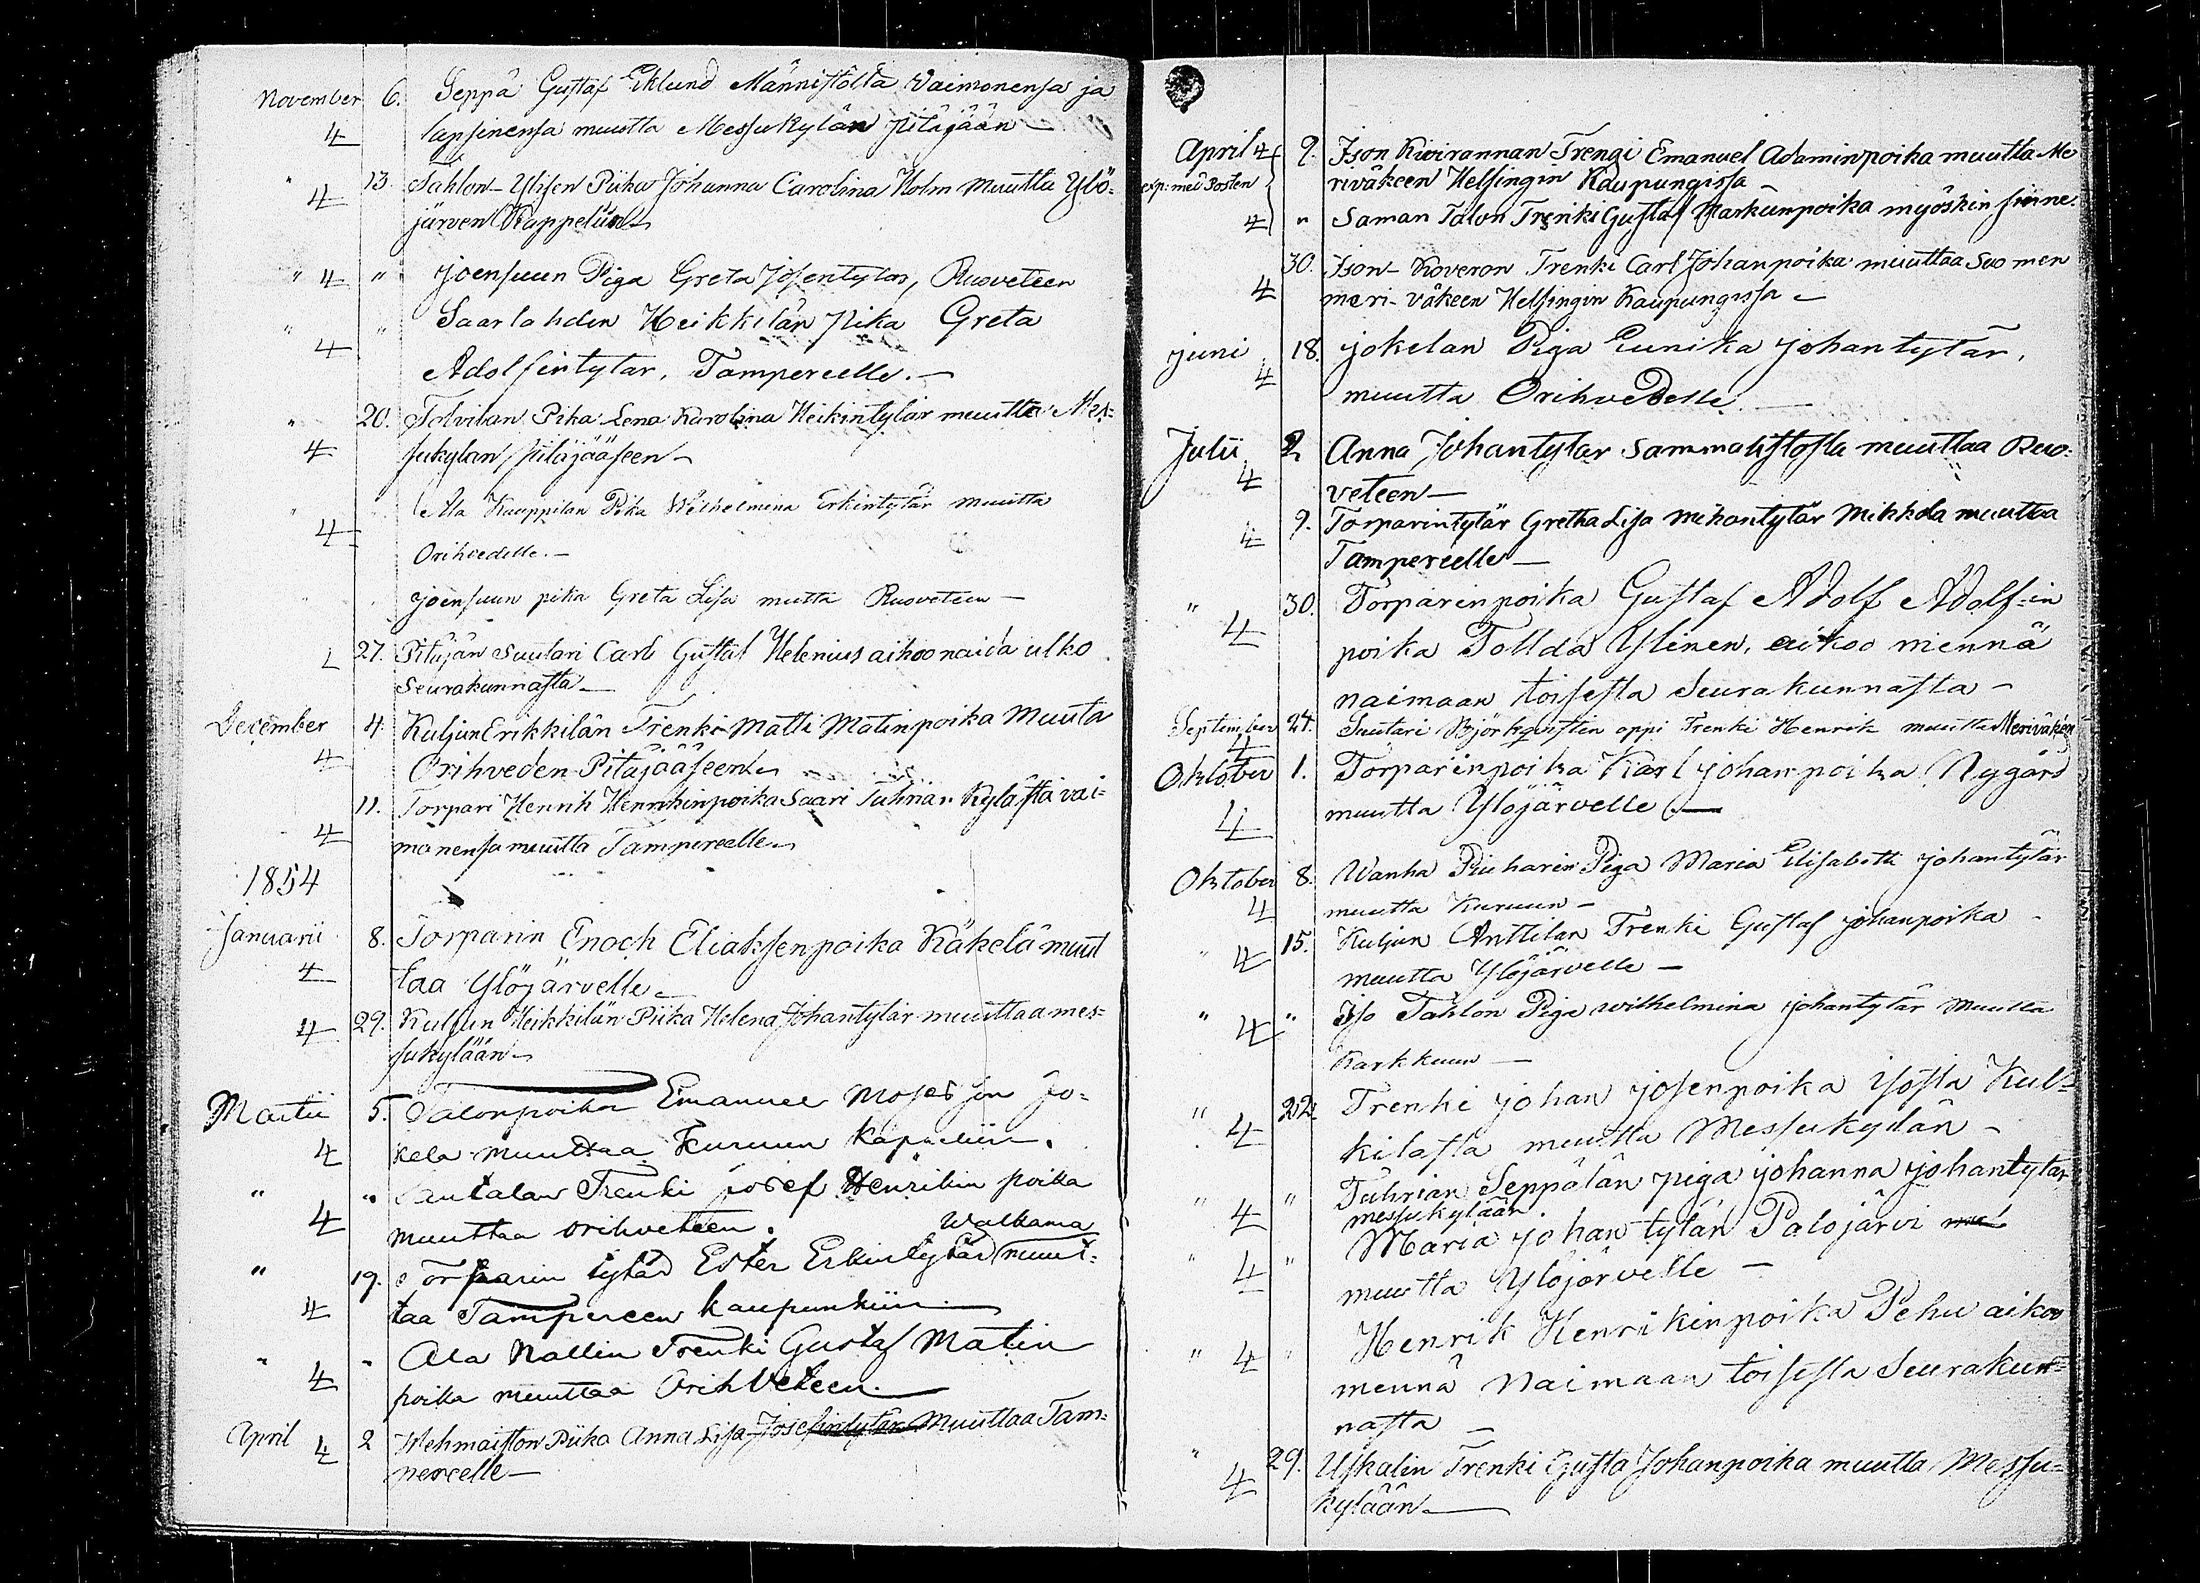 November 6. Seppä Gustaf Eklund Männistöltä Vaimonensa ja
4 lapsinensa muutta Messukylän pitäjään —
" 4 13 Tahlon-Ylisen Piika Johanna Carolina Holm muutta Ylö-
järven Kappeliin —
" 4 " Joensuun Piga Greta Josentytar, Ruoveteen
" 4 " Saarlahden Heikkilän pika Greta
Adolfintytar, Tampereelle. —
" 4 20. Tolvilan Pika Lena Karolina Heikintytär muutta Mes-
sukylan pitäjääseen —
" 4 Ala Kauppilan Pika Wilhelmina Erkintytär muutta
Orihvedelle. —
Joensuun pika Greta Lisa mutta Ruoveteen —
27. Pitäjän Suutari Carl Gustaf Helenius aikoo naida ulko
Seurakunnasta —
December 4 4. Kuljun Erikkilän Trenki Matti Matinpoika Muuta
Orihveden Pitäjääseen —
4 11. Torpari Henrik Henrikinpoika Saari Tuhrian Kylästä vai-
monensa muutta Tampereelle —
1854
Januarii 4 8. Torparin Enoch Eliaksenpoika Käkelä muut
taa Ylöjärvelle —
4 29. Kuljun Heikkilän Piika Helena Johantytär muuttaa mes-
sukylään —
Martii 4 5. Talonpoika Emanuel Moses son Jo-
kela muuttaa Kuruun Kapeliin.
" 4 " Lautalan Trenki Josef Henrikin poika
muuttaa Orihveteen. Walkama
" 4 19. Torparin tytär Ester Erkintytär muut-
taa Tampereen kaupunkiin —
" 4 " Ala Nallin Trenki Gustaf Matin
poika muuttaa Orihveteen. —
April 4 2 Mehmaiston Piika Anna Lisa Josefintytär Muuttaa Tam-
pereelle —
April 4 9. Ison Kivirannan Trengi Emanuel Adaminpoika muutta Me
exp: med Posten riväkeen Helsingin Kaupungissa —
4 " Saman Talon Trenki Gustaf Markunpoika myöskin sinne.
4 30. Ison-Koveron Trenki Carl Johanpoika muuttaa Suomen
meri-väkeen Helsingin Kaupungissa —
Juni 4 18. Jokelan Piga Eunika Johantytär,
muutta Orihvedelle —
Julii 4 2 Anna Johantytar Sammalistosta muuttaa Ruo-
veteen —
4 9. Torparintytär Gretha Lisa Mikantytär Mikkola muuttaa
Tampereelle —
" 4 30. Torparinpoika Gustaf Adolf Adolf-in
poika Tollda Ylinen, aikoo mennä
naimaan toisesta Seurakunnasta —
September 4 24. Suutari Björkqvistin oppi Trenki Henrik muutta Meriväkeen
Oktober 4 1. Torparinpoika Karl Johanpoika Nygård
muutta Ylöjärvelle —
Oktober 4 8. Wanha Riuharin Piga Maria Elisabeth Johantytär
muutta Kuruun —
" 4 15. Kuljun Anttilan Trenki Gustaf Johanpoika
muutta Ylöjärvelle —
" 4 " Iso Tahlon Piga Wilhelmina Johantytär muutta
Karkkuun —
" 4 22. Trenki Johan Josenpoika Isosta Kul-
kilasta muutta Messukylän —
" 4 " Tuhrian Seppälän piga Johanna Johantytar
messukylään.
" 4 " Maria Johantytär Palojärvi
muutta Ylöjärvelle —
" 4 " Henrik Henrikinpoika Pehu aikoo
mennä Naimaan toisesta Seurakun-
nasta —
" 4 29. Uskalin Trenki Gusta Johanpoika muutta Messu-
kylään —